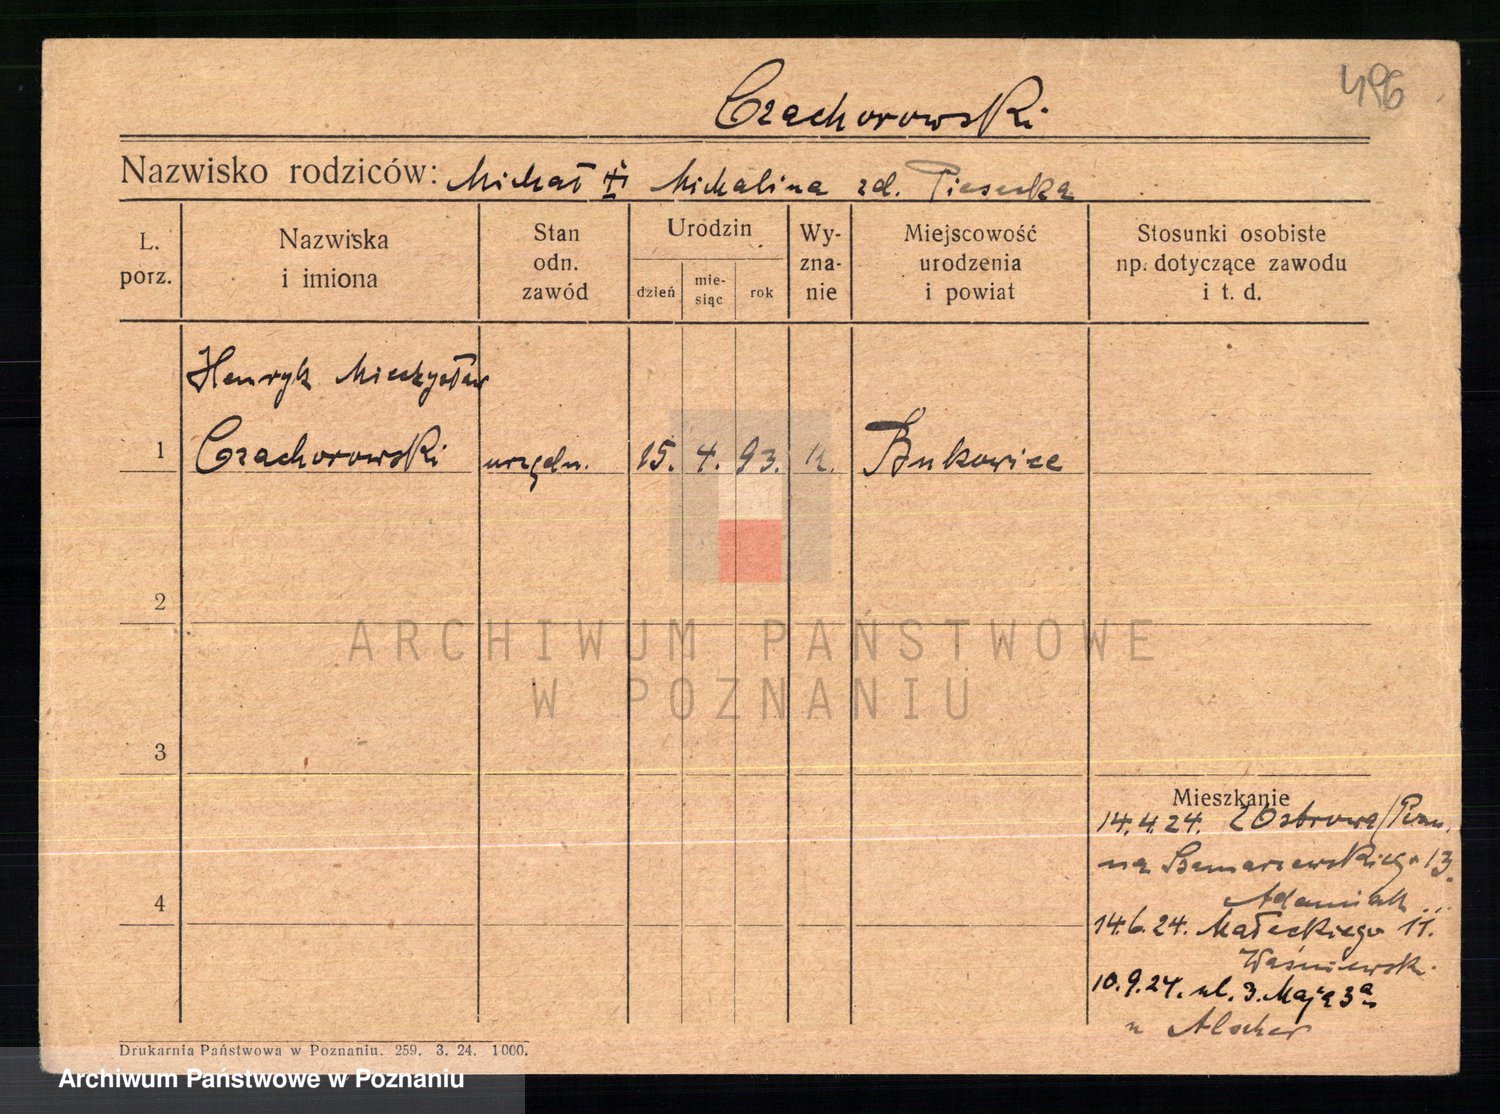 496
Czachorowski
Nazwisko rodziców: Michał i Michalina zd. Piesecka
L. porz.
Nazwiska i imiona
Stan odn. zawód
Urodzin
dzień
mie-siąc
rok
Wy-zna-nie
Miejscowość urodzenia i powiat
Stosunki osobiste np. dotyczące zawodu i t. d.
Henryk Mieczysław
1 Czachorowski urzędn. 15. 4. 93. k. Bukowiec
2
ARCHIWUM PAŃSTWOWE
W POZNANIU
3
Mieszkanie
14.4.24. z Ostrowa/Pozn.
na Szamarzewskiego 13.
4
Adamiak
14.6.24. Małeckiego 11.
Waśniewsk.
10.9.24. ul. 3. Maja 3a
u Alscher
Drukarnia Państwowa w Poznaniu. 259. 3. 24. 1000.
Archiwum Państwowe w Poznaniu